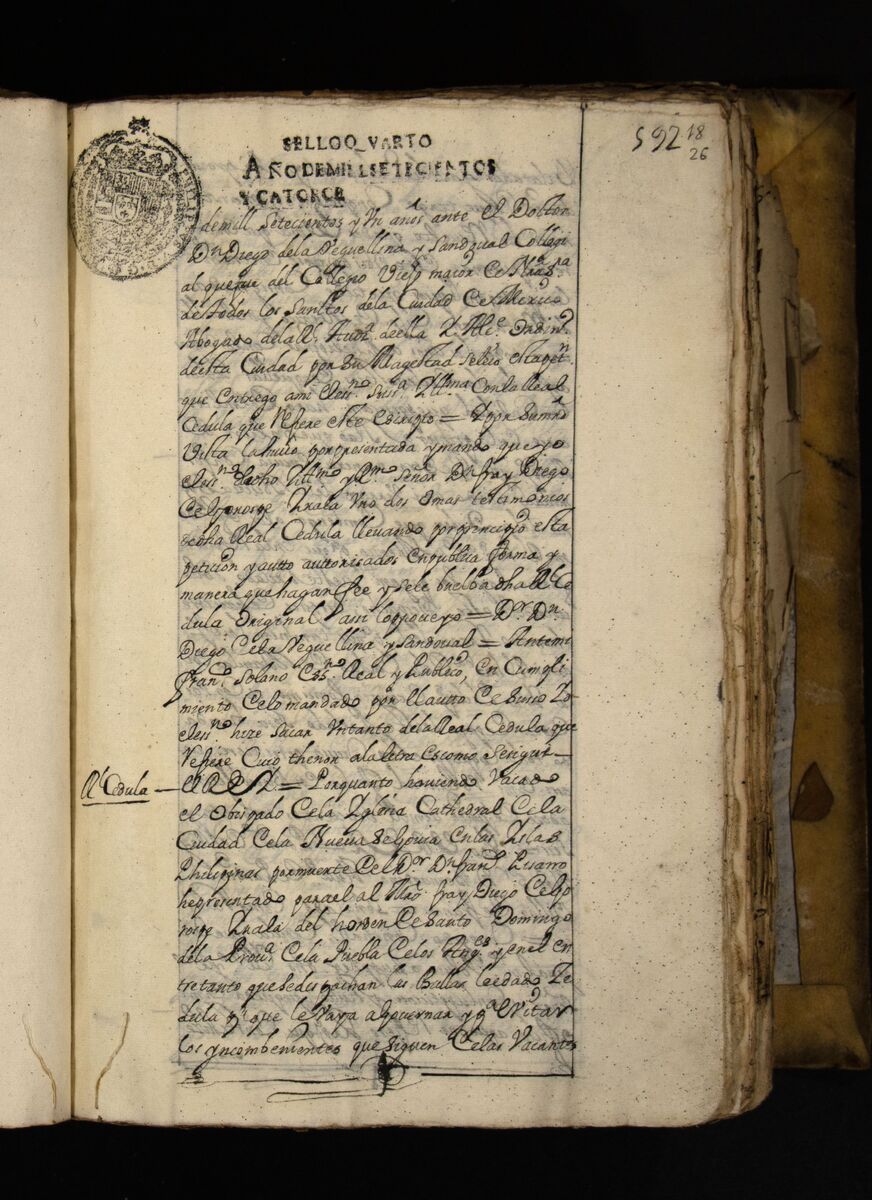 592 18
26
SELLOQVARTO
AÑODEMILLSETECIENTOS
Y CATORCE
demill Setecientos y Un años ante el Doctor
Dn Diego dela Veguellina y Sandoual Collegi
al que fue del Collegio Viejo maior de
de todos los Santtos dela Ciudad de Mexico
Abogado dela Rl. Audª. deella Y Alce. Ordinº.
deesta Ciudad por Su Magestad Se esta petn
que entrego ami el essno. Su Yllma Con la Real
Cedula que refiere este escripto = Y por Summd
Vista la huvo por presentada y mando que yo
el essno. dho Yllmo y Rmo Señor Dn fray Diego
de Gorospe Yrala Uno dos o mas testimonios
dedha Real Cedula lleuando por principio esta
peticion y autto autorisados en publica forma y
manera que hagan fee y sele buelba dha Rl Ce
dula Original assi lo proueyo = Dr. Dn.
Diego de la Veguellina y Sandoual = Antemi
Franco. Solano essno. Real y Publico, En Cumpli
miento delo mandado por el autto de Suso Yo
el essno. hize Sacar Un tanto dela Real Cedula que
refiere Cuio thenor ala letra es como Sesigue
Rl Cedula — El REY = Porquanto hauiendo Vacado
el Obispado de la Yglesia Cathedral de la
Ciudad de la Nueua Segouia en las Yslas
Philipinas por muerte del Dor. Dn. franco. Pisarro
he presentado para el al Mro. fray Diego de Go
rospe Yrala del horden de Santo Domingo
dela Prouª. de la Puebla de los Anges. y en el en
tretanto que se despachan las Bullas le e dado Ze
dula pª. que le Vaya a Gouernar y pª. euitar
los yncombenientes que Siguen de las Vacantes